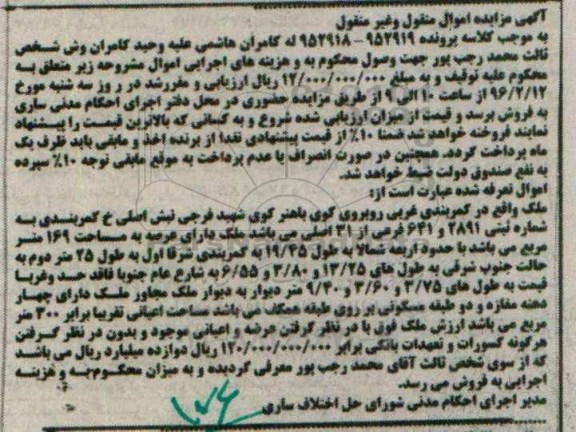 آگهی مزایده اموال منقول وغیر منقول
به موجب کلاسه پرونده ۹۵۲۹۱۹-۹۵۲۹۱۸ له کامران هاشمی علیه وحید کامران وش شخص
ثالث محمد رجب پور جهت وصول محکوم به و هزینه های اجرایی اموال مشروحه زیر متعلق به
محکوم علیه توقیف و به مبلغ ۱۲/۰۰۰/۰۰۰/۰۰۰ ریال ارزیابی و مقررشد در ر وز سه شنبه مورخ
۹۶/۲/۱۲ از ساعت ۱۰ الی ۹ از طریق مزایده حضوری در محل دفتر اجرای احکام مدنی ساری
به فروش برسد و قیمت از میزان ارزیابی شده شروع و به کسانی که بالاترین قیمت را پیشنهاد
نمایند فروخته خواهد شد ضمنا ۱۰٪ از قیمت پیشنهادی نقدا از برنده اخذ و مابقی باید ظرف یک
ماه پرداخت گردد. همچنین در صورت انصراف یا عدم پرداخت به موقع مابقی توجه ۱۰٪ سپرده
به نفع صندوق دولت ضبط خواهد شد.
اموال تعرفه شده عبارت است از:
ملک واقع در کمربندی غربی روبروی کوی باهنر کوی شهید فرجی نبش اصلی خ کمربندی به
شماره ثبتی ۲۸۹۱ و ۶۴۱ فرعی از ۳۱ اصلی می باشد ملک دارای عرصه به مساحت ۱۶۹ متر
مربع می باشد با حدود اربعه شمالا به طول ۱۹/۴۵ به کمربندی شرقا اول به طول ۲۵ متر دوم به
حالت جنوب شرقی به طول های ۱۳/۲۵ و ۳/۸۰ و ۶/۵۵ به شارع عام جنوبا فاقد حد وغربا
قیمت به طول های ۳/۷۵ و ۳/۶۰ و ۹/۴۰ متر دیوار به دیوار ملک مجاور ملک دارای چهار
دهنه مغازه و دو طبقه مسکونی بر روی طبقه همکف می باشد مساحت اعیانی تقریبا برابر ۳۰۰ متر
مربع می باشد ارزش ملک فوق با در نظر گرفتن عرصه و اعیانی موجود و بدون در نظر گرفتن
هرگونه کسورات و تعهدات بانکی برابر ۱۲۰/۰۰۰/۰۰۰/۰۰۰ ریال دوازده میلیارد ریال می باشد
که از سوی شخص ثالث آقای محمد رجب پور معرفی گردیده و به میزان محکوم به و هزینه
اجرایی به فروش می رسد.
مدیر اجرای احکام مدنی شورای حل اختلاف ساری